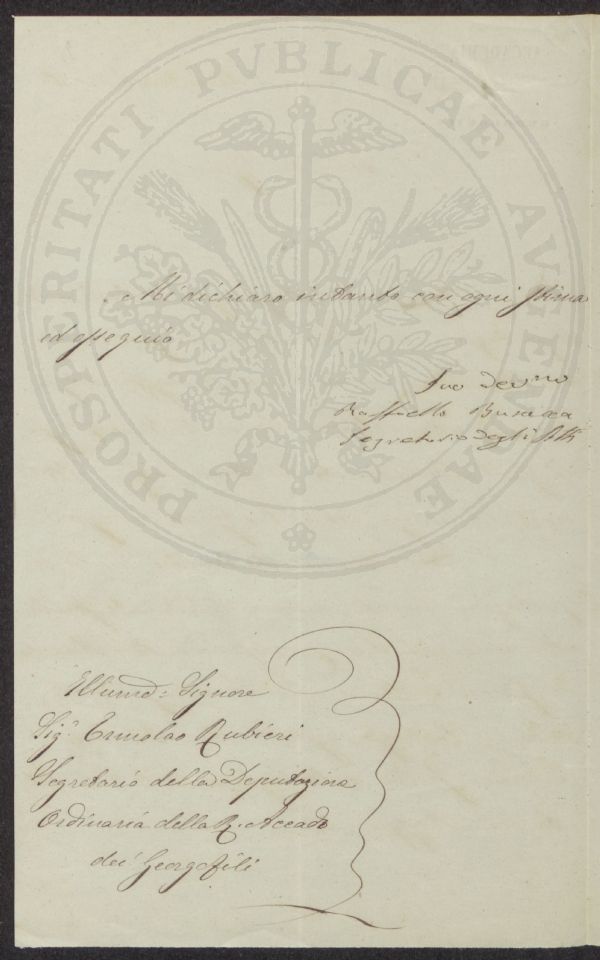 PROSPERITATI PVBLICAE AVGENDAE
Mi dichiaro intanto con ogni stima
ed ossequio
Suo Devmo
Raffaello Busacca
Segretario degli Atti
Illumo: Signore
Sigr. Ermolao Rubieri
Segretario della Deputazione
Ordinaria della R. Accade
dei Georgofili